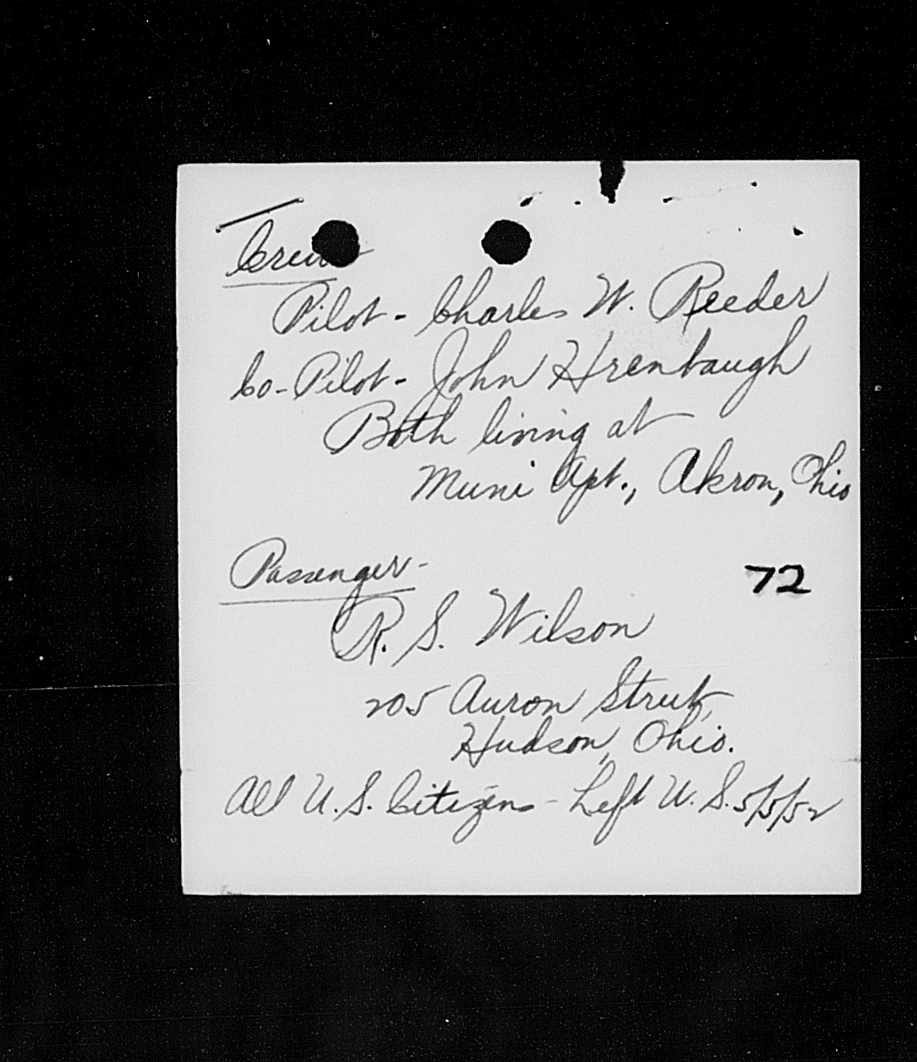 Crew
Pilot - Charles W. Reeder
Co-Pilot - John Hrenbaugh
Both living at
Muni Apt., Akron, Ohio
Passenger -
72
R. S. Wilson
205 Auron Street,
Hudson, Ohio.
All U.S. Citizens - Left U.S. 5/5/52